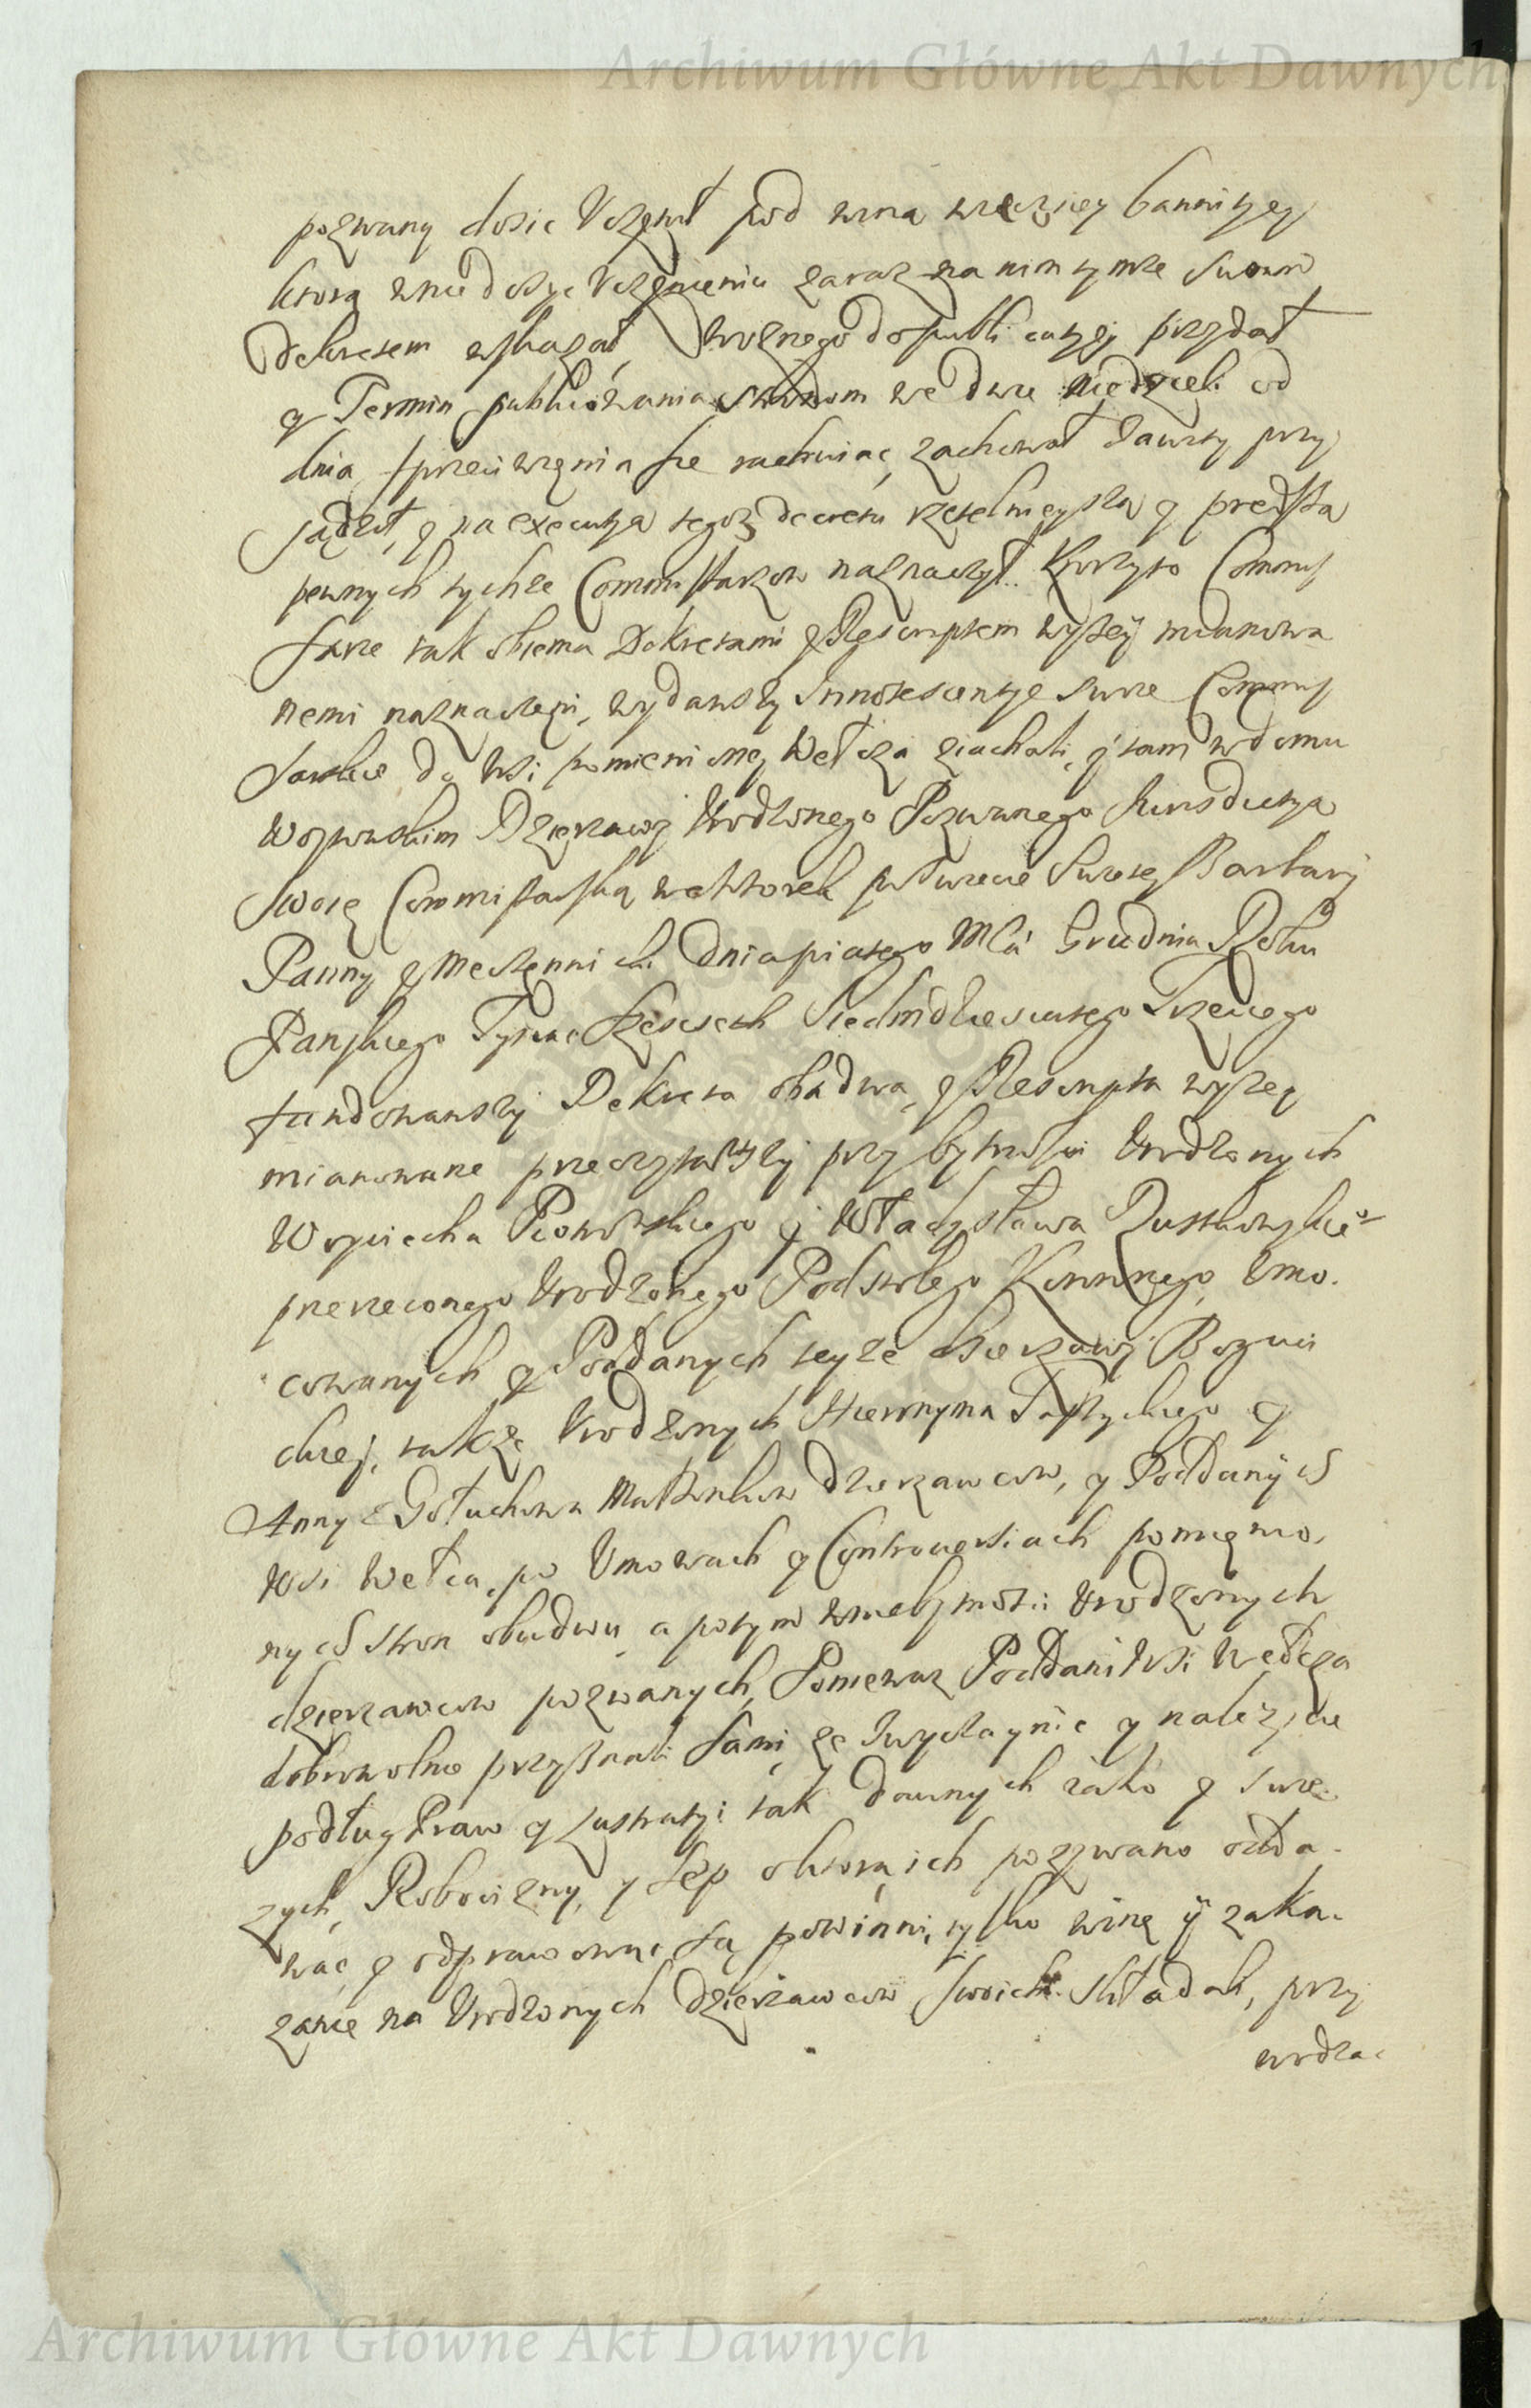 Archiwum Główne Akt Dawnych
pozwany dosić Uczynił pod winą wieczney bannitzyey
ktorą wnie dosyc Uczynieniu zaraz na nim tymże Swoim
Dekretem wskazał, Woznego do publicatyey przydał
y Termin publicowania stronom we dwie niedzieli od
dnia sprzeciwienia sie rachuiąc zachował Dawszy przy
sądził, y na executyą tegoz decretu rzetelnieyszą y prędszą
pewnych tychże Commissarzow naznaczył. Ktorzy to Commis
sarze tak obiema Dekretami y Rescryptem wyszey mianowa
nemi naznaczeni, wydawszy Innotescentye swoie Commis
sarskie do Wsi pomienioney Wełcza ziachali, y tam w domu
Woytowskim Dzierzawy Urodzonego Pozwanego Jurisdictyą
Swoię Commissarską we Wtorek po Swięcie Swietey Barbary
Panny y Męczenniczki Dnia piątego Mca Grudnia Roku
Pańskiego Tysiąc Szescset Siedmdziesiątego Trzeciego
fundowawszy Dekreta obadwa, y Rescrypta wyszey
mianowane przeczytawszy przy bytności Urodzonych
Woyciecha Piotrowskiego y Władysława Ruszkowskie°
przerzeczonego Urodzonego Podstolego Koronnego, Umo.
cowanych y Poddanych teyże dzierzawy Bogu ci
chiey, także Urodzonych Hieronyma Taszyckiego y
Anny z Gołuchowa Małżonkow Dzierzawcow, y Poddanych
Wsi Wełcza, po Umowach y Controwersiach pomienio,
nych stron obudwu, a potym w niebytności Urodzonych
dzierzawcow pozwanych, Poniewaz Poddani Wsi Wełcza
dobrowolnie przyznali sami, ze zwyczaynie y należycie
podług Praw y Lustratyi tak dawnych iako y swie.
zych, Robocizny, y sep o ktorą ich pozywano odda.
wać y odprawować są powinni, tylko winę y zaka.
zanie na Urodzonych dzierzawcow swoich składali, przy
wodza.
Archiwum Główne Akt Dawnych